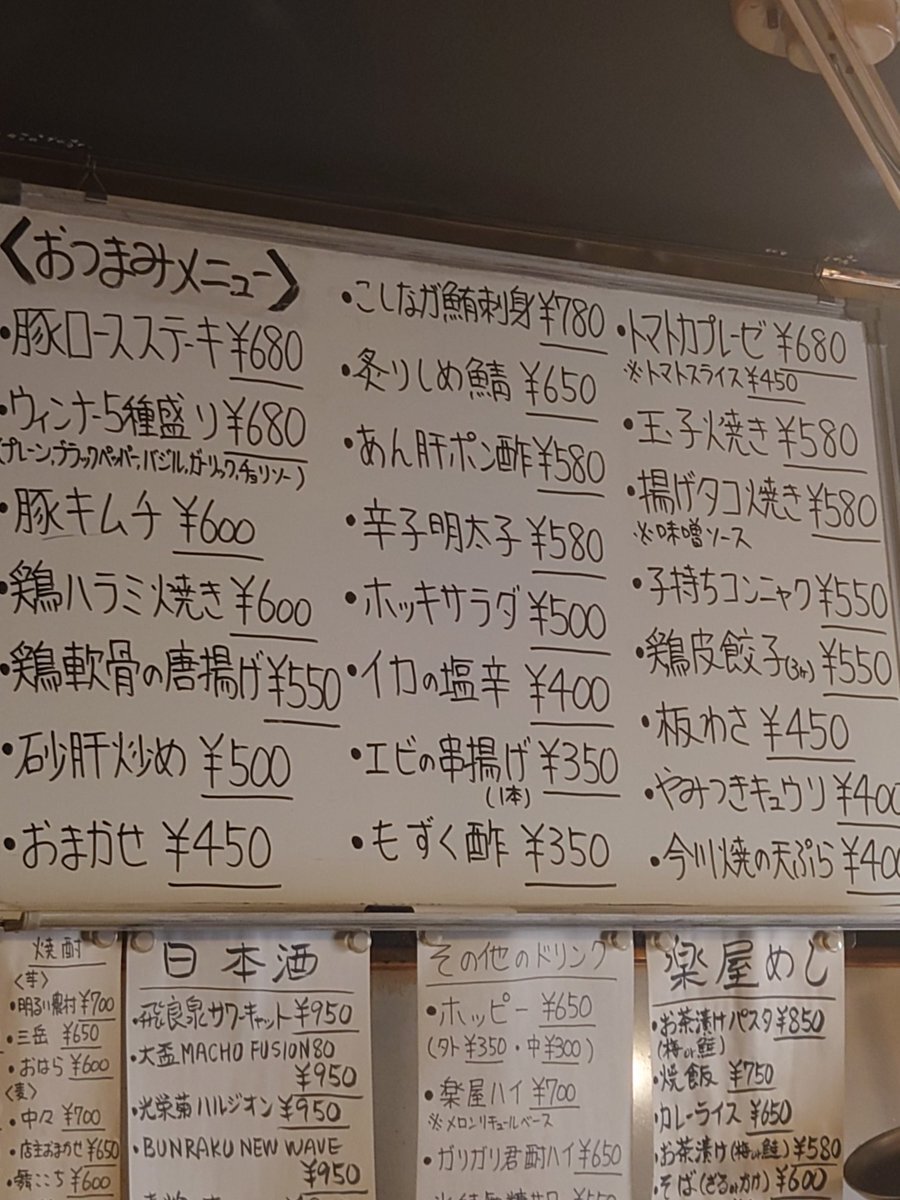 〈おつまみメニュー〉
・豚ロースステーキ ¥680
・ウィンナー5種盛り ¥680
(プレーン,ブラックペッパー,バジル,ガーリック,チョリソー)
・豚キムチ ¥600
・鶏ハラミ焼き ¥600
・鶏軟骨の唐揚げ ¥550
・砂肝炒め ¥500
・おまかせ ¥450
・こしなが鮪刺身 ¥780
・炙りしめ鯖 ¥650
・あん肝ポン酢 ¥580
・辛子明太子 ¥580
・ホッキサラダ ¥500
・イカの塩辛 ¥400
・エビの串揚げ ¥350
(1本)
・もずく酢 ¥350
・トマトカプレーゼ ¥680
※トマトスライス ¥450
・玉子焼き ¥580
・揚げタコ焼き ¥580
※味噌ソース
・子持ちコンニャク ¥550
・鶏皮餃子(3ヶ) ¥550
・板わさ ¥450
・やみつきキュウリ ¥400
・今川焼の天ぷら ¥400
焼酎
〈芋〉
・明るい農村 ¥700
・三岳 ¥650
・おはら ¥600
〈麦〉
・中々 ¥700
・店主おまかせ ¥650
ここち ¥600
日本酒
・飛良泉サワーキャット ¥950
・大盃 MACHO FUSION80
¥950
・光栄菊ハルジオン ¥950
・BUNRAKU NEW WAVE
¥950
その他のドリンク
・ホッピー ¥650
(外 ¥350・中 ¥300)
・楽屋ハイ ¥700
※メロンリキュールベース
・ガリガリ君酎ハイ ¥650
楽屋めし
・お茶漬けパスタ ¥850
(梅or鮭)
・焼飯 ¥750
・カレーライス ¥650
・お茶漬け(梅or鮭) ¥580
・そば(ざるorかけ) ¥600